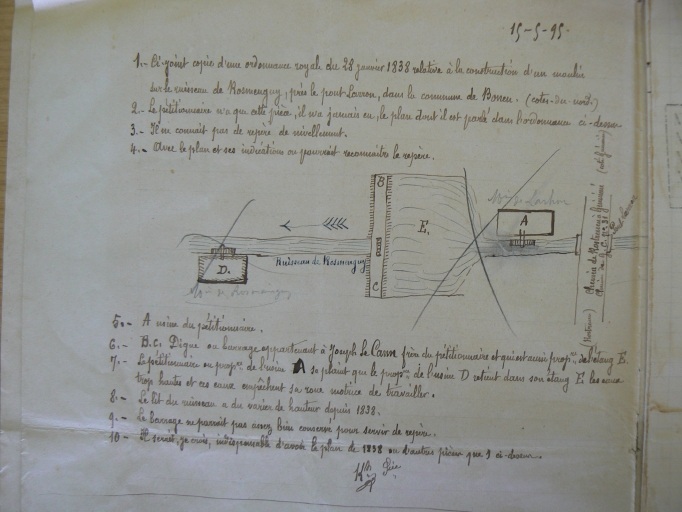 15-5-95
1.- Ci-joint copie d'une ordonnance royale du 28 janvier 1838 relative à la construction d'un moulin
sur le ruisseau de Rosmenguy, près le pont Larron, dans la commune de Bonen. (Côtes-du-Nord.)
2.- Le pétitionnaire n'a que cette pièce, il n'a jamais eu le plan dont il est parlé dans l'ordonnance ci-dessus.
3.- Il ne connait pas de repère de nivellement.
4.- Avec le plan et ses indications on pourrait reconnaître le repère.
B
C
E.
A
D.
Ruisseau de Rosmenguy
Chemin de Rostrenen à
5.- A usine du pétitionnaire.
6.- B.C. Digue ou barrage appartenant à Joseph Le Cann frère du pétitionnaire et qui est aussi prop.re de l'étang E.
7.- Le pétitionnaire ou prop.re de l'usine A se plaint que le prop.re de l'usine D retient dans son étang E les eaux
trop hautes et ces eaux empêchent sa roue motrice de travailler.
8.- Le lit du ruisseau a du varier de hauteur depuis 1838.
9.- Le barrage ne parait pas assez bien conservé pour servir de repère.
10.- Il serait, je crois, indispensable d'avoir le plan de 1838 ou d'autres pièces que ci-dessus.